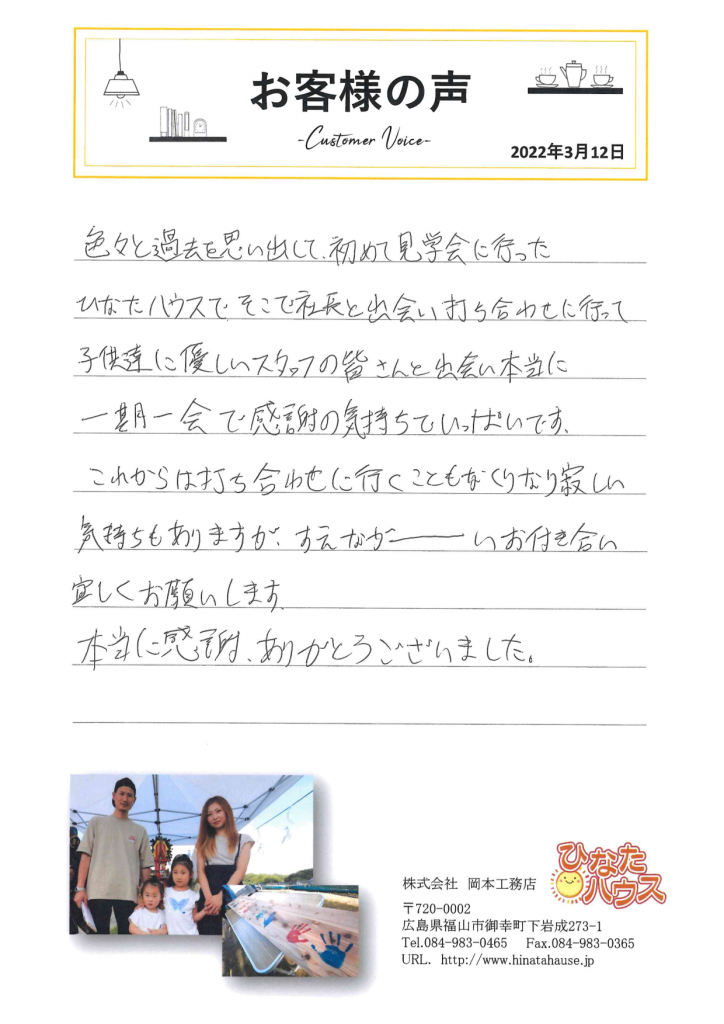 お客様の声
-Customer Voice-
2022年3月12日
色々と過去を思い出して、初めて見学会に行った
ひなたハウスで、そこで社長と出会い打ち合わせに行って
子供達に優しいスタッフの皆さんと出会い本当に
一期一会で感謝の気持ちでいっぱいです、
これからは打ち合わせに行くこともなくりなり寂しい
気持ちもありますが、すえなが――いお付き合い
宜しくお願いします、
本当に感謝、ありがとうございました。
株式会社 岡本工務店
ひなた
ハウス
〒720-0002
広島県福山市御幸町下岩成273-1
Tel.084-983-0465 Fax.084-983-0365
URL. http://www.hinatahause.jp